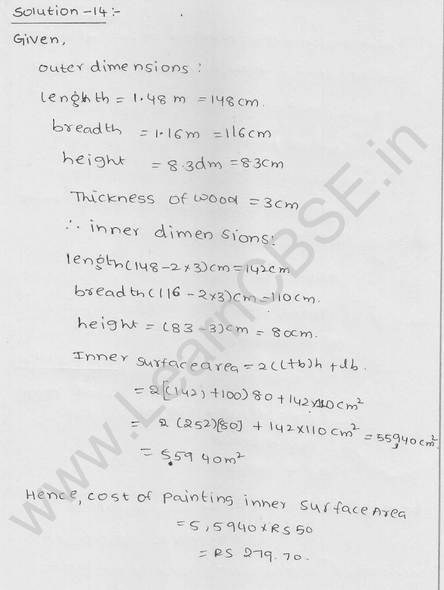 Solution-14:-
Given,
outer dimensions:
length = 1.48 m = 148 cm.
breadth = 1.16 m = 116 cm
height = 8.3 dm = 83 cm
Thickness of wood = 3 cm
∴ inner dimensions:
length (148 - 2×3) cm = 142 cm
breadth (116 - 2×3) cm = 110 cm.
height = (83 - 3) cm = 80 cm.
Inner surface area = 2(l+b)h + lb.
= 2[(142) + 100) 80 + 142×110 cm²
= 2 (252)[80] + 142×110 cm² = 55940 cm²
= 5.5940 m²
Hence, cost of painting inner surface Area
= 5.5940 × RS 50
= RS 279.70.
www.LearnCBSE.in